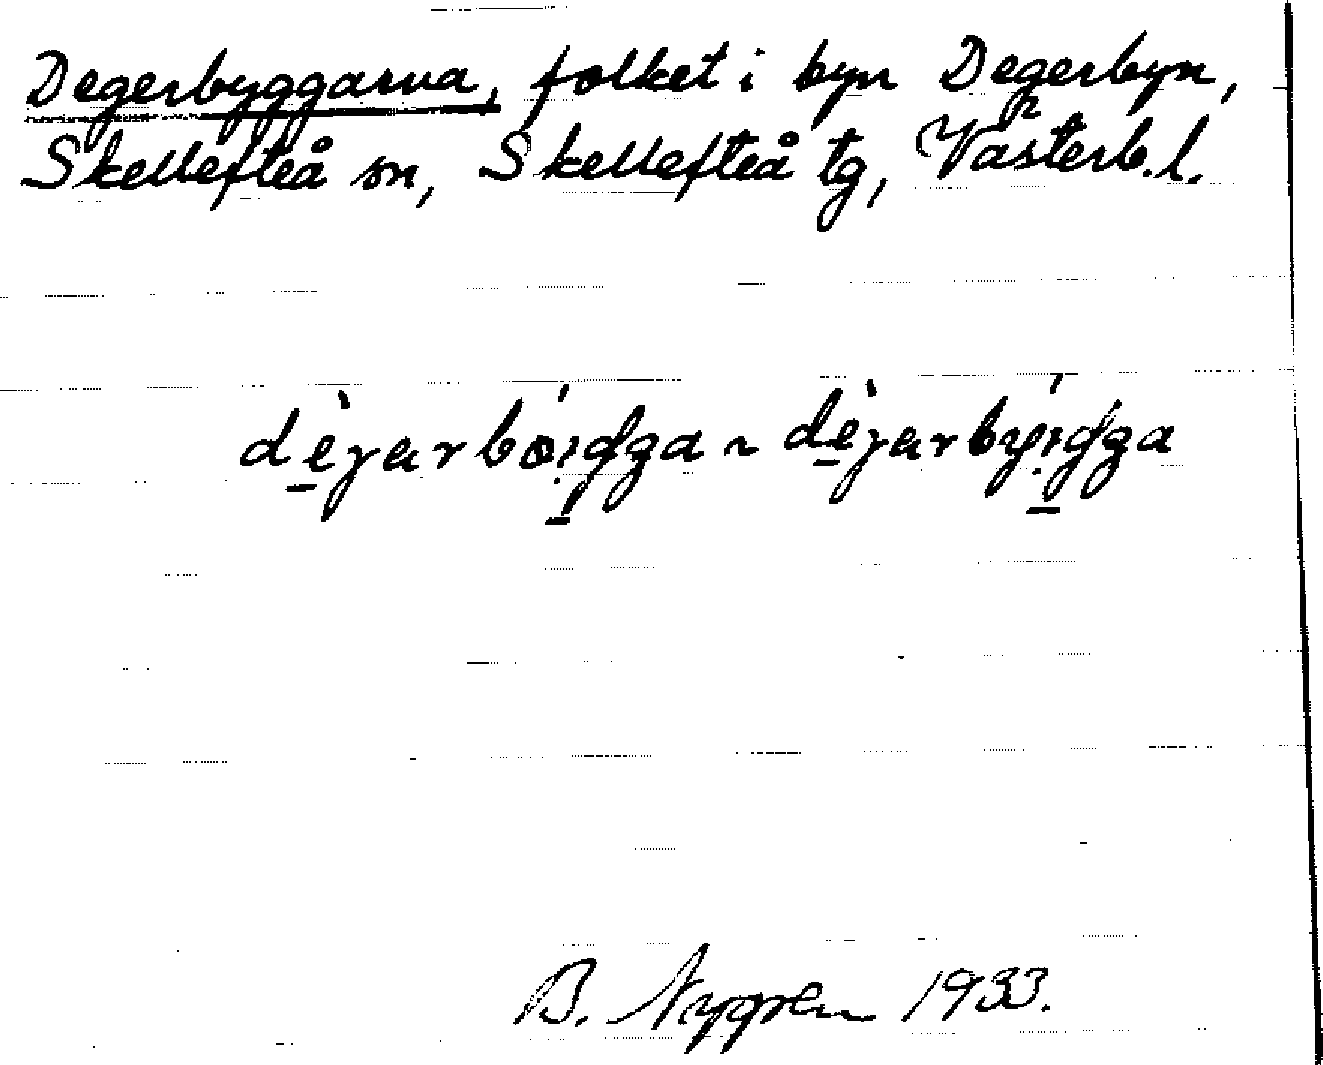 Degerbyggarna, folket i byn Degerbyn,
Skellefteå sn, Skellefteå tg, Västerb.l.
B. Nygren 1933.